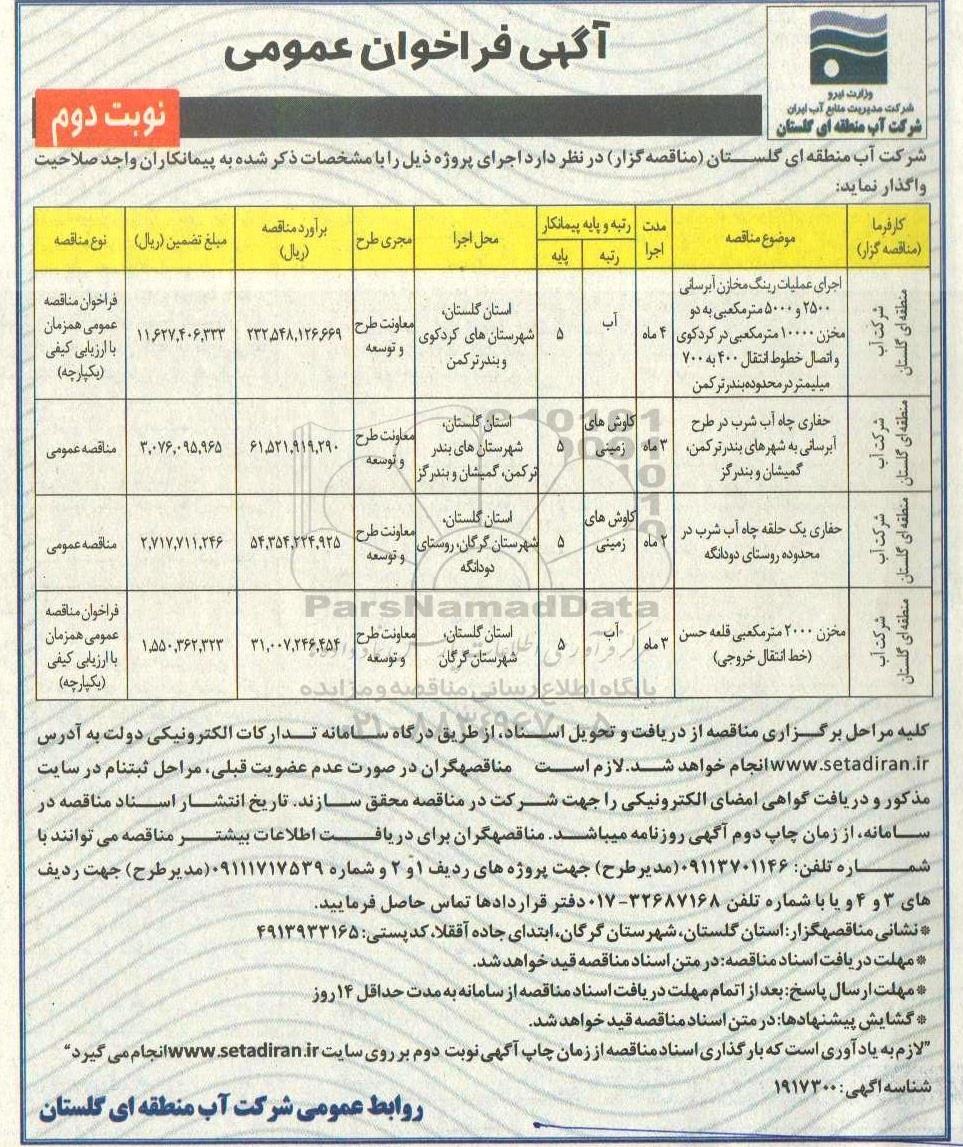 آگهی فراخوان عمومی
وزارت نیرو
شرکت مدیریت منابع آب ایران
شرکت آب منطقه ای گلستان
نوبت دوم
شرکت آب منطقه ای گلستان (مناقصه گزار) در نظر دارد اجرای پروژه ذیل را با مشخصات ذکر شده به پیمانکاران واجد صلاحیت
واگذار نماید:
کارفرما (مناقصه گزار) موضوع مناقصه مدت اجرا رتبه و پایه پیمانکار رتبه پایه محل اجرا مجری طرح برآورد مناقصه (ریال) مبلغ تضمین (ریال) نوع مناقصه
شرکت آب منطقه ای گلستان
اجرای عملیات رینگ مخازن آبرسانی
۲۵۰۰ و ۵۰۰۰ مترمکعبی به دو
مخزن ۱۰۰۰۰ مترمکعبی در کردکوی
و اتصال خطوط انتقال ۴۰۰ به ۷۰۰
میلیمتر در محدوده بندرترکمن
۴ ماه
آب
۵
استان گلستان،
شهرستان های کردکوی
و بندر ترکمن
معاونت طرح
و توسعه
۲۳۲,۵۴۸,۱۲۶,۶۶۹
۱۱,۶۲۷,۴۰۶,۳۳۳
فراخوان مناقصه
عمومی همزمان
با ارزیابی کیفی
(یکپارچه)
شرکت آب منطقه ای گلستان
حفاری چاه آب شرب در طرح
آبرسانی به شهرهای بندرترکمن،
گمیشان و بندرگز
۳ ماه
کاوش های
زمینی
۵
استان گلستان،
شهرستان های بندر
ترکمن، گمیشان و بندرگز
معاونت طرح
و توسعه
۶۱,۵۲۱,۹۱۹,۲۹۰
۳,۰۷۶,۰۹۵,۹۶۵
مناقصه عمومی
شرکت آب منطقه ای گلستان
حفاری یک حلقه چاه آب شرب در
محدوده روستای دودانگه
۲ ماه
کاوش های
زمینی
۵
استان گلستان،
شهرستان گرگان، روستای
دودانگه
معاونت طرح
و توسعه
۵۴,۳۵۴,۲۲۴,۹۲۵
۲,۷۱۷,۷۱۱,۲۴۶
مناقصه عمومی
شرکت آب منطقه ای گلستان
مخزن ۲۰۰۰ مترمکعبی قلعه حسن
(خط انتقال خروجی)
۳ ماه
آب
۵
استان گلستان،
شهرستان گرگان
معاونت طرح
و توسعه
۳۱,۰۰۷,۲۴۶,۴۵۴
۱,۵۵۰,۳۶۲,۳۲۳
فراخوان مناقصه
عمومی همزمان
با ارزیابی کیفی
(یکپارچه)
ParsNamadData
پایگاه اطلاع رسانی مناقصه و مزایده
کلیه مراحل برگزاری مناقصه از دریافت و تحویل اسناد، از طریق درگاه سامانه تدارکات الکترونیکی دولت به آدرس
www.setadiran.ir انجام خواهد شد. لازم است مناقصهگران در صورت عدم عضویت قبلی، مراحل ثبتنام در سایت
مذکور و دریافت گواهی امضای الکترونیکی را جهت شرکت در مناقصه محقق سازند. تاریخ انتشار اسناد مناقصه در
سامانه، از زمان چاپ دوم آگهی روزنامه میباشد. مناقصهگران برای دریافت اطلاعات بیشتر مناقصه می توانند با
شماره تلفن: ۰۹۱۱۳۷۰۱۱۴۶(مدیرطرح) جهت پروژه های ردیف ۱و ۲ و شماره ۰۹۱۱۱۷۱۷۵۳۹(مدیرطرح) جهت ردیف
های ۳ و ۴ و یا با شماره تلفن ۳۲۶۸۷۱۶۸-۰۱۷ دفتر قراردادها تماس حاصل فرمایید.
*نشانی مناقصهگزار: استان گلستان، شهرستان گرگان، ابتدای جاده آققلا، کدپستی: ۴۹۱۳۹۳۳۱۶۵
*مهلت دریافت اسناد مناقصه: در متن اسناد مناقصه قید خواهد شد.
*مهلت ارسال پاسخ: بعد از اتمام مهلت دریافت اسناد مناقصه از سامانه به مدت حداقل ۱۴ روز
*گشایش پیشنهادها: در متن اسناد مناقصه قید خواهد شد.
"لازم به یادآوری است که بارگذاری اسناد مناقصه از زمان چاپ آگهی نوبت دوم بر روی سایت www.setadiran.ir انجام می گیرد"
شناسه آگهی: ۱۹۱۷۳۰۰
روابط عمومی شرکت آب منطقه ای گلستان